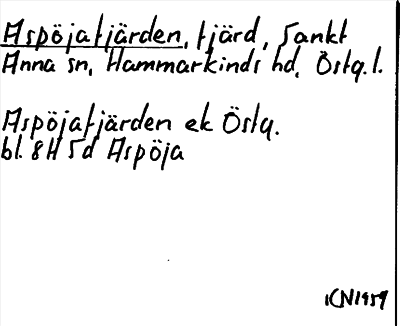 Aspöjafjärden, fjärd, Sankt
Anna sn, Hammarkinds hd, Östg.l.
Aspöjafjärden ek Östg.
bl. 8H 5d Aspöja
ICN 1959